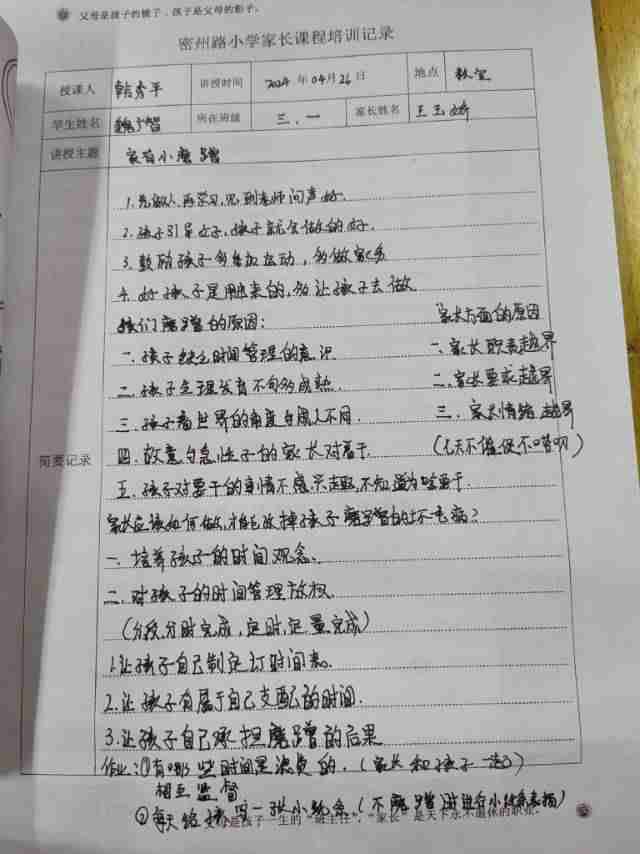 父母是孩子的镜子，孩子是父母的影子。
密州路小学家长课程培训记录
授课人 韩秀平 讲授时间 2024 年 04月 26 日 地点 教室
学生姓名 魏 智 所在班级 三、一 家长姓名 王玉娇
讲授主题 家有小磨蹭
简要记录
1. 先做人,再学习,见到老师问声好.
2. 孩子引导好,孩子就会做的好.
3. 鼓励孩子多参加运动,多做家务
4. 好孩子是 来的,多让孩子去做
孩们磨蹭的原因: 家长方面的原因
一、孩子缺乏时间管理的意识 一、家长职责越界
二、孩子生理发育不够成熟. 二、家长要求越界
三、孩子看世界的角度与成人不同. 三、家长情绪越界
四、故意与急性子的家长对着干. (无天不催促不唠叨)
五、孩子对要干的事情不感兴趣,不知道为啥要干.
家长应该如何做,才能改掉孩子磨蹭的坏毛病?
一、培养孩子的时间观念.
二、对孩子的时间管理放权.
(分段分时完成,定时,定量完成)
1.让孩子自己制定订时间表.
2.让孩子有属于自己支配的时间.
3.让孩子自己承担磨蹭的后果
作业:①有哪些时间是浪费的.(家长和孩子一起)
相互监督
②每天给孩 一张小 (不磨蹭 进行小 表扬)
父母是孩子一生的“班主任”,“家长”是天下永不退休的职业。